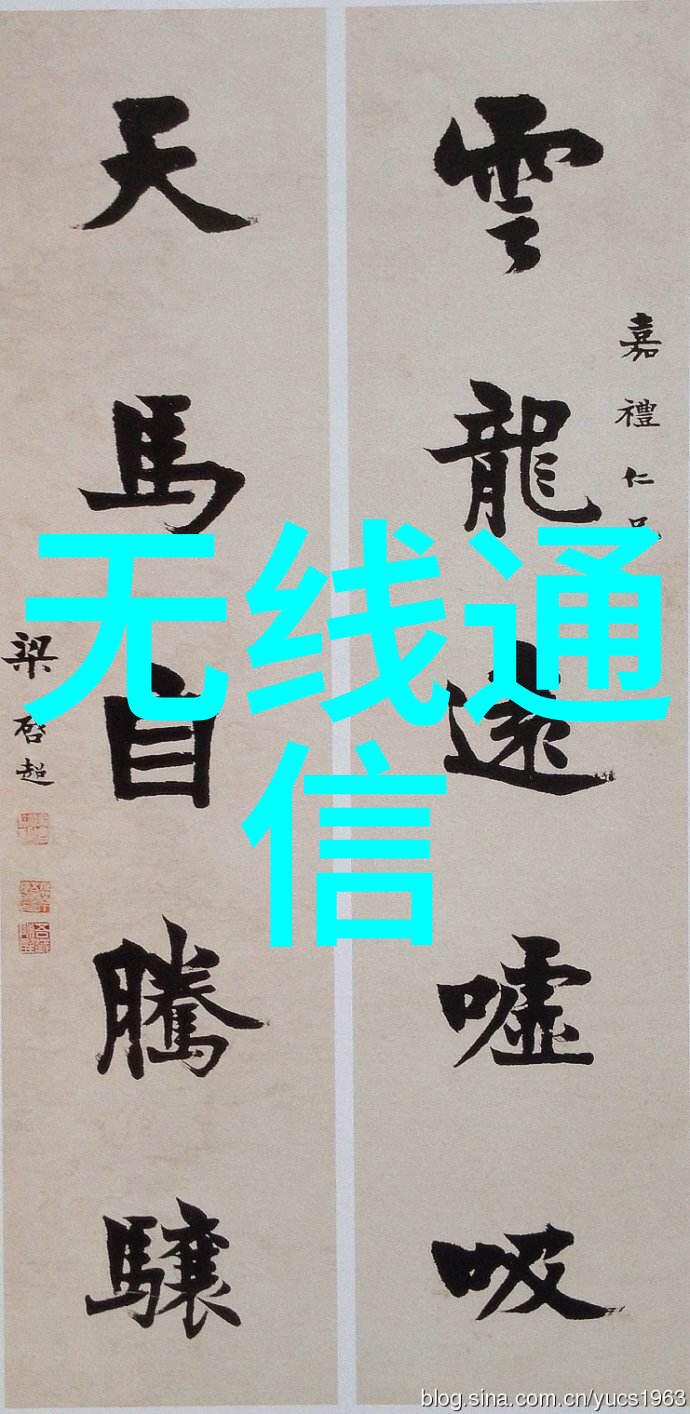 雲龍遠嘘吸
嘉禮仁兄
天馬自騰驤
梁啓超
无线通
信
blog.sina.com.cn/yucs1963